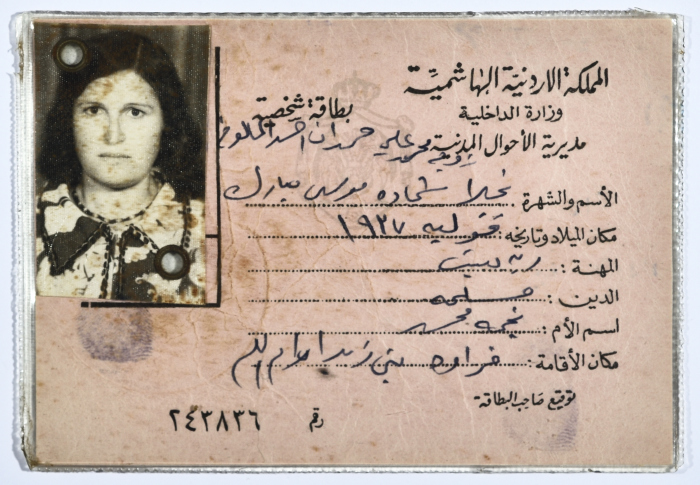 المملكة الاردنيّة الهاشميّة
وزارة الداخلية
بطاقة شخصية
مديرية الأحوال المدنية
زوجة محمد علي حمدان احمد
الأسم والشهرة : نجلا شحاده موسى مبارك
مكان الميلاد وتاريخه : ١٩٣٧
المهنة : ربة بيت
الدين : مسلمه
اسم الأم : نجمه محمد
مكان الأقامة :
توقيع صاحب البطاقة
رقم ٢٤٣٨٣٦